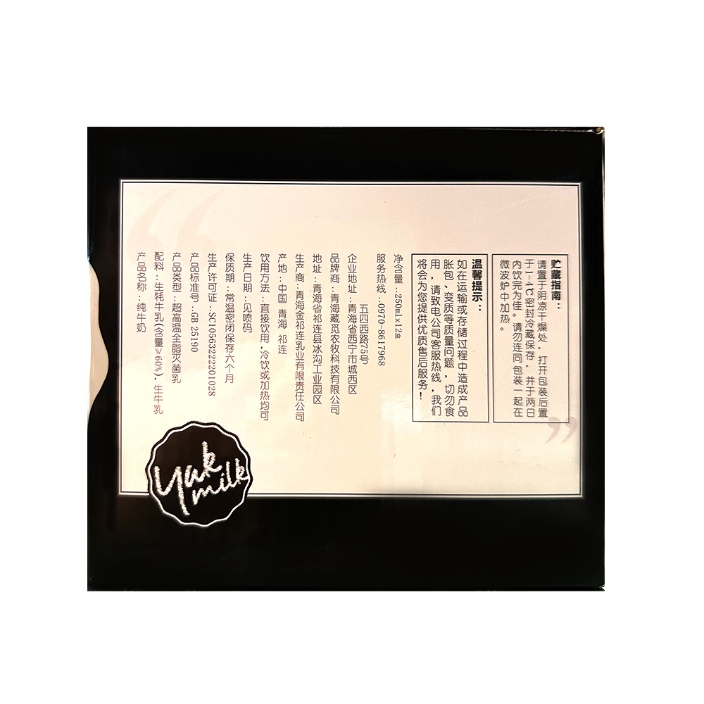 产品名称：纯牛奶
配料：生牦牛乳(含量≥60%)，生牛乳
产品类型：超高温全脂灭菌乳
产品标准号：GB 25190
生产许可证：SC10563222201028
保质期：常温密闭保存六个月
生产日期：见喷码
饮用方法：直接饮用，冷饮或加热均可
产地：中国 青海 祁连
生产商：青海金祁连乳业有限责任公司
地址：青海省祁连县冰沟工业园区
品牌商：青海藏觅农牧科技有限公司
企业地址：青海省西宁市城西区
五四西路75号
服务热线：0970-8617968
净含量：250ml×12盒
温馨提示：
如在运输或存储过程中造成产品
胀包、变质等质量问题，切勿食
用，请致电公司客服热线，我们
将会为您提供优质售后服务！
贮藏指南：
请置于阴凉干燥处，打开包装后置
于1-4℃密封冷藏保存，并于两日
内饮完为佳，请勿连同包装一起在
微波炉中加热。
Yak
milk